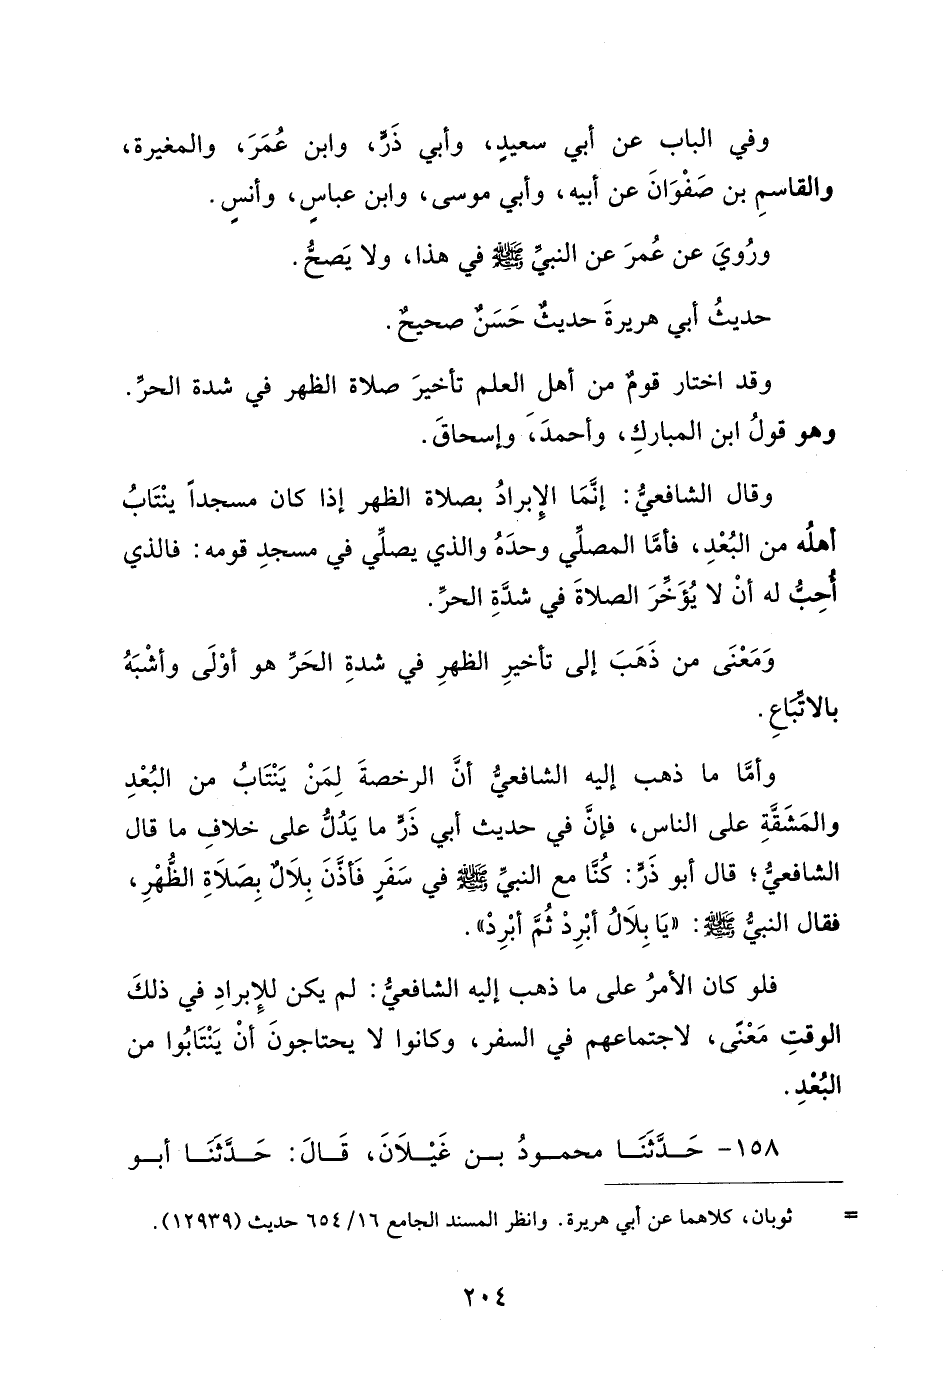 وفي الباب عن أبي سعيدٍ، وأبي ذَرٍّ، وابن عُمَرَ، والمغيرة،
والقاسمِ بن صَفْوَانَ عن أبيه، وأبي موسى، وابن عباسٍ، وأنسٍ.
ورُويَ عن عُمرَ عن النبيِّ ﷺ في هذا، ولا يَصحُّ.
حديثُ أبي هريرةَ حديثٌ حَسَنٌ صحيحٌ.
وقد اختار قومٌ من أهل العلم تأخيرَ صلاة الظهر في شدة الحرِّ.
وهو قولُ ابن المباركِ، وأحمدَ، وإسحاقَ.
وقال الشافعيُّ: إنَّمَا الإِبرادُ بصلاة الظهر إذا كان مسجداً ينْتَابُ
أهلُه من البُعْدِ، فأمَّا المصلِّي وحدَهُ والذي يصلِّي في مسجدِ قومه: فالذي
أُحِبُّ له أنْ لا يُؤَخِّرَ الصلاةَ في شدَّةِ الحرِّ.
وَمَعْنَى من ذَهَبَ إلى تأخيرِ الظهرِ في شدةِ الحَرِّ هو أوْلَى وأشْبَهُ
بالاتِّبَاعِ.
وأمَّا ما ذهب إليه الشافعيُّ أنَّ الرخصةَ لِمَنْ يَنْتَابُ من البُعْدِ
والمَشَقَّةِ على الناس، فإنَّ في حديث أبي ذَرٍّ ما يَدُلُّ على خلافِ ما قال
الشافعيُّ؛ قال أبو ذَرٍّ: كُنَّا مع النبيِّ ﷺ في سَفَرٍ فَأذَّنَ بِلَالٌ بِصَلَاةِ الظُّهْرِ،
فقال النبيُّ ﷺ: «يَا بِلَالُ أبْرِدْ ثُمَّ أبْرِدْ».
فلو كان الأمرُ على ما ذهب إليه الشافعيُّ: لم يكن للإِبرادِ في ذلكَ
الوقتِ مَعْنًى، لاجتماعهم في السفر، وكانوا لا يحتاجونَ أنْ يَنْتَابُوا من
البُعْدِ.
١٥٨- حَدَّثَنَا محمودُ بن غَيْلَانَ، قَالَ: حَدَّثَنَا أبو
= ثوبان، كلاهما عن أبي هريرة. وانظر المسند الجامع ١٦/ ٦٥٤ حديث (١٢٩٣٩).
٢٠٤